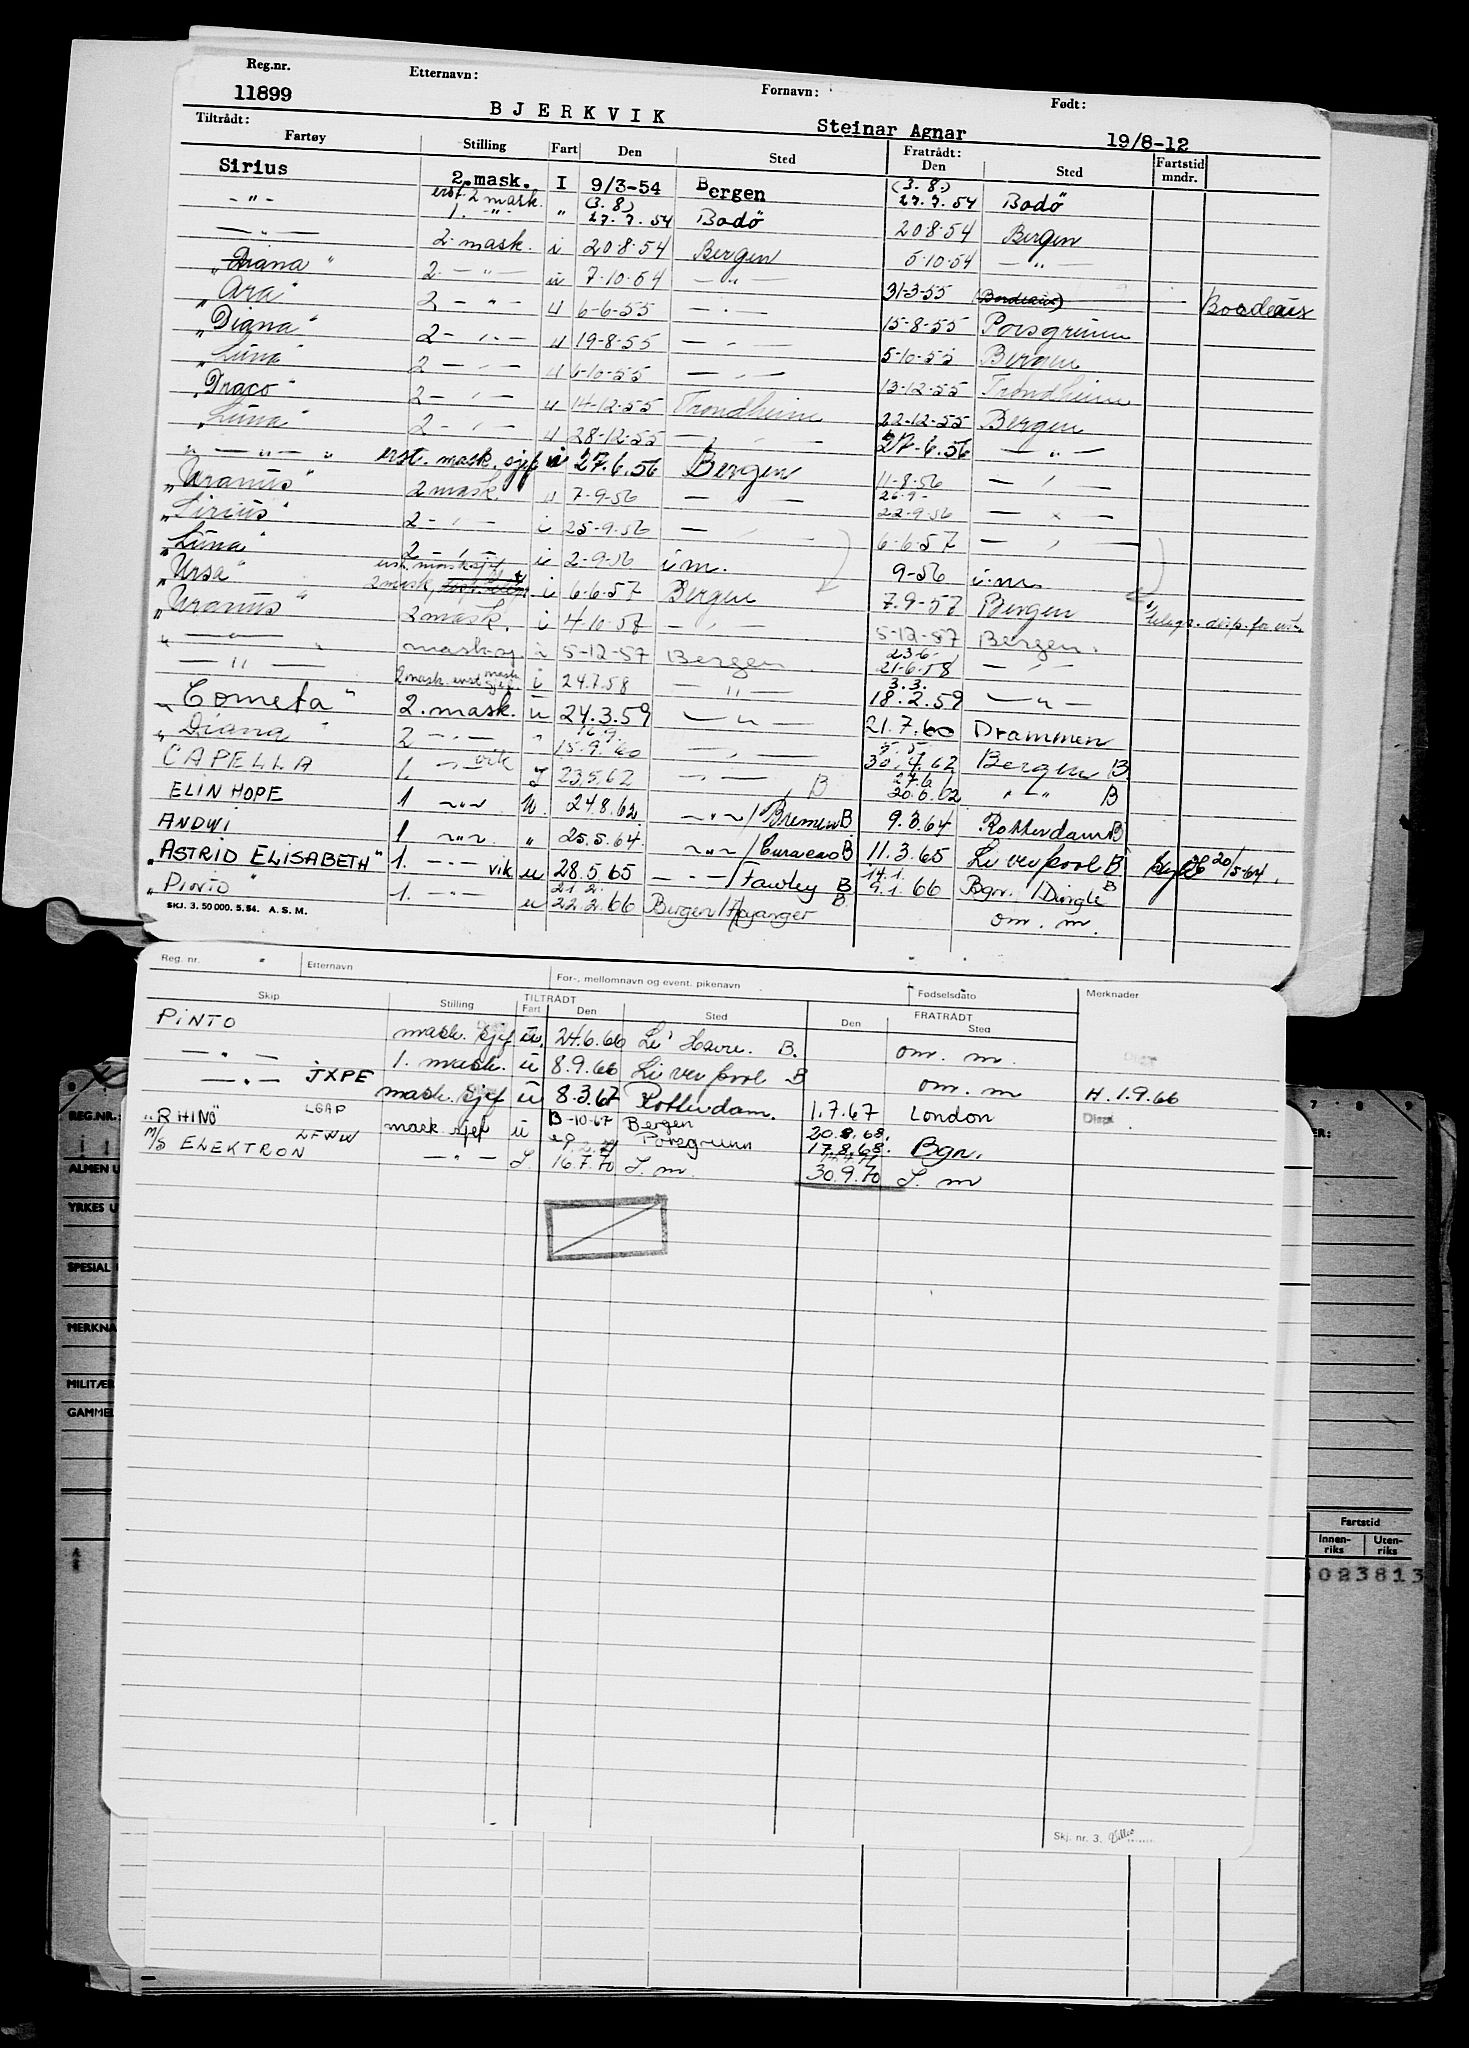 Reg.nr. Etternavn: Fornavn: Født:
11899 BJERKVIK Steinar Agnar 19/8-12
Tiltrådt: Fratrådt:
Fartøy Stilling Fart Den Sted Den Sted Fartstid mndr.
Sirius 2.mask. I 9/3-54 Bergen (3.8.) 27.7.54 Bodö
-"- erst. 2 mask. 1. -"- " (3.8) 27.7.54 Bodö 20 8-54 Bergen
-"- 2. mask. i 20.8.54 Bergen 5.10.54 -"-
"Diana" 2. -"- u 7.10.54 -"- 31-3-55 (Bordeaux) Bordeaux
"Ara" 2 -"- u 6-6-55 -"- 15-8-55 Porsgrunn
"Diana" 2 -"- u 19-8-55 -"- 5-10-55 Bergen
"Luna" 2 -"- u 6-10-55 -"- 13-12-55 Trondheim
"Draco" 2 -"- u 14-12-55 Trondheim 22-12-55 Bergen
"Luna" 2 -"- u 28-12-55 -"- 27-6.56 -"-
" -"- " erst. mask. sjef u 27.6.56 Bergen 11-8-56 -"-
"Uranus" 2 mask u 7-9-56 -"- 26.9- 22-9-56 -"-
"Sirius" 2 -"- i 25-9-56 -"- 6-6-57 -"-
"Luna" 2 -"- i 2-9-56 i.m. 9-56 i.m.
"Ursa" erst. masksjef 2 mask, i 6-6-57 Bergen 7.9-57 Bergen
"Uranus" 2 mask. i 4-10-57 -"- 5-12-57 Bergen.
" -"- " masksj. i 5-12-57 Bergen 23-6- 21-6-58 -"-
-"- 2 mask. erst mask sjef. i 24.7.58 -"- 3.3. 18.2.59 -"-
"Cometa" 2. mask. u 24.3.59 -"- 21.7.60 Drammen
"Diana" 2 -"- " 16.9. 15.9.60 -"- 5.5. 30.4.62 Bergen B
CAPELLA 1. -"- vik I 23.5.62 -"- B 27.6. 20.6.62 " -"- B
ELIN HOPE 1 -"- U. 24.8.62 -"- /Bremen B 9.3.64 Rotterdam B
ANDWI 1 -"- " 25.5.64. -"- /Curacao B 11.3.65 Liverpool B 20/5-64.
"ASTRID ELISABETH" 1. -"- vik u 28.5.65 -"- /Fawley B 14.1. 9.1.66 Bgn. /Dingle B
"Pinto" 1. -"- u 21.2. 22.2.66 Bergen/ B. om. m.
SKJ. 3. 50 000. 5. 54. A. S. M.
Reg. nr. Etternavn For-, mellomnavn og event. pikenavn Fødselsdato Merknader
TILTRÅDT FRATRÅDT
Skip Stilling Fart Den Sted Den Sted
PINTO mask. sjef u. 24.6.66 Le Havre. B. om. m.
-"- 1. mask. u 8.9.66 Liverpool B om. m H. 1.9.66
-"- JXPE mask. sjef u 8.3.67 Rotterdam. 1.7.67 London
"RHINO" LGAP mask. sjef u -10-67 Bergen 20.8.68. 17.8.68. Bgn.
M/S ELEKTRON LFWW -"- I. 16.7.70 Porsgrunn I. m. 30.9.70 I. m
Skj. nr. 3.
REG.NR.:
ALMEN U
YRKES U
SPESIAL
MERKNA
MILITÆR
GAMMEL
7 · 8 · 9
Fartstid
Innenriks Utenriks
023813